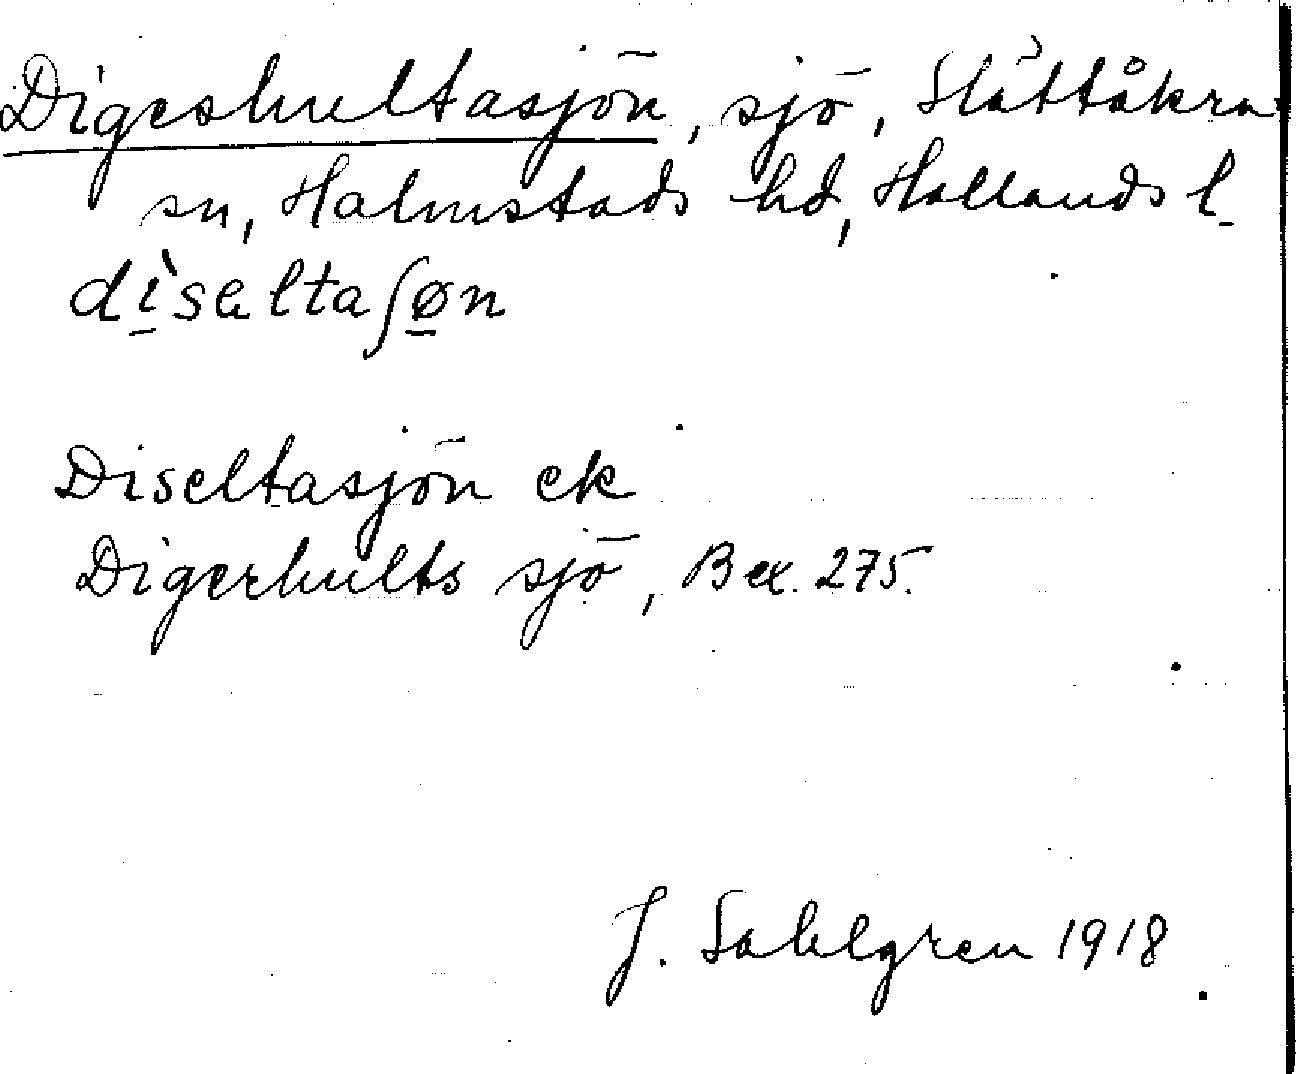 Digeshultasjön, sjö, Slättåkra
sn, Halmstads hd, Hallands l.
dì̠seltaʃø̠n
Diseltasjön ek
Digerhults sjö, Bex. 275.
J. Sahlgren 1918